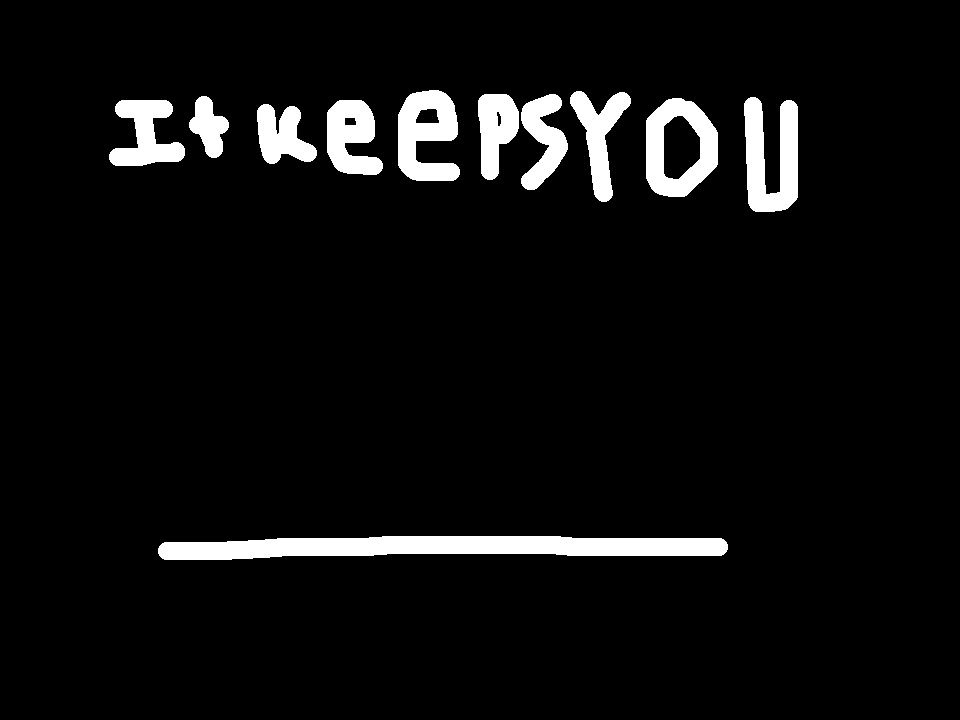 It keeps you